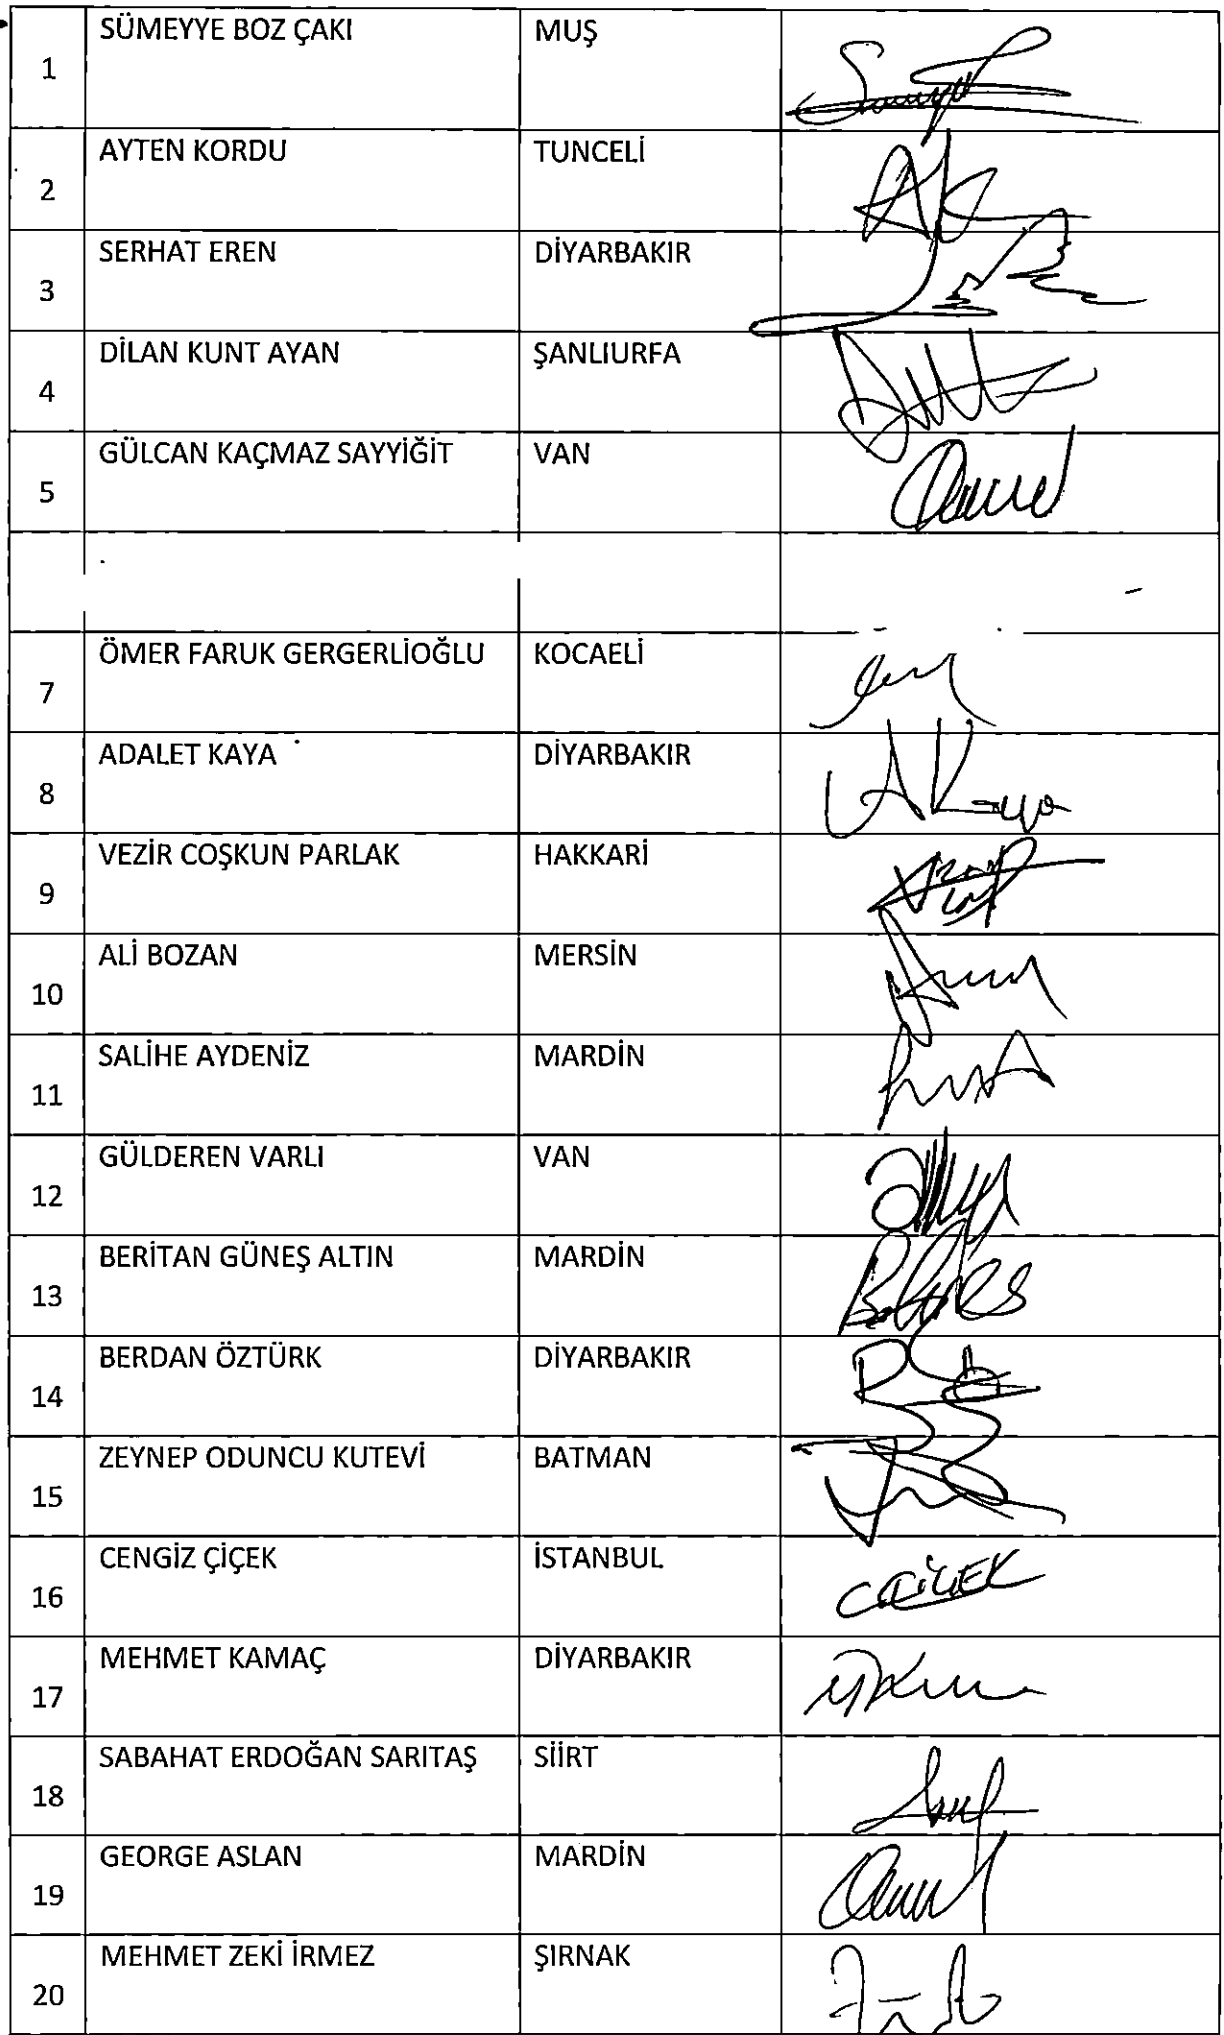 1 SÜMEYYE BOZ ÇAKI MUŞ
2 AYTEN KORDU TUNCELİ
3 SERHAT EREN DİYARBAKIR
4 DİLAN KUNT AYAN ŞANLIURFA
5 GÜLCAN KAÇMAZ SAYYİĞİT VAN
7 ÖMER FARUK GERGERLİOĞLU KOCAELİ
8 ADALET KAYA DİYARBAKIR
9 VEZİR COŞKUN PARLAK HAKKARİ
10 ALİ BOZAN MERSİN
11 SALİHE AYDENİZ MARDİN
12 GÜLDEREN VARLI VAN
13 BERİTAN GÜNEŞ ALTIN MARDİN
14 BERDAN ÖZTÜRK DİYARBAKIR
15 ZEYNEP ODUNCU KUTEVİ BATMAN
16 CENGİZ ÇİÇEK İSTANBUL
17 MEHMET KAMAÇ DİYARBAKIR
18 SABAHAT ERDOĞAN SARITAŞ SİİRT
19 GEORGE ASLAN MARDİN
20 MEHMET ZEKİ İRMEZ ŞIRNAK